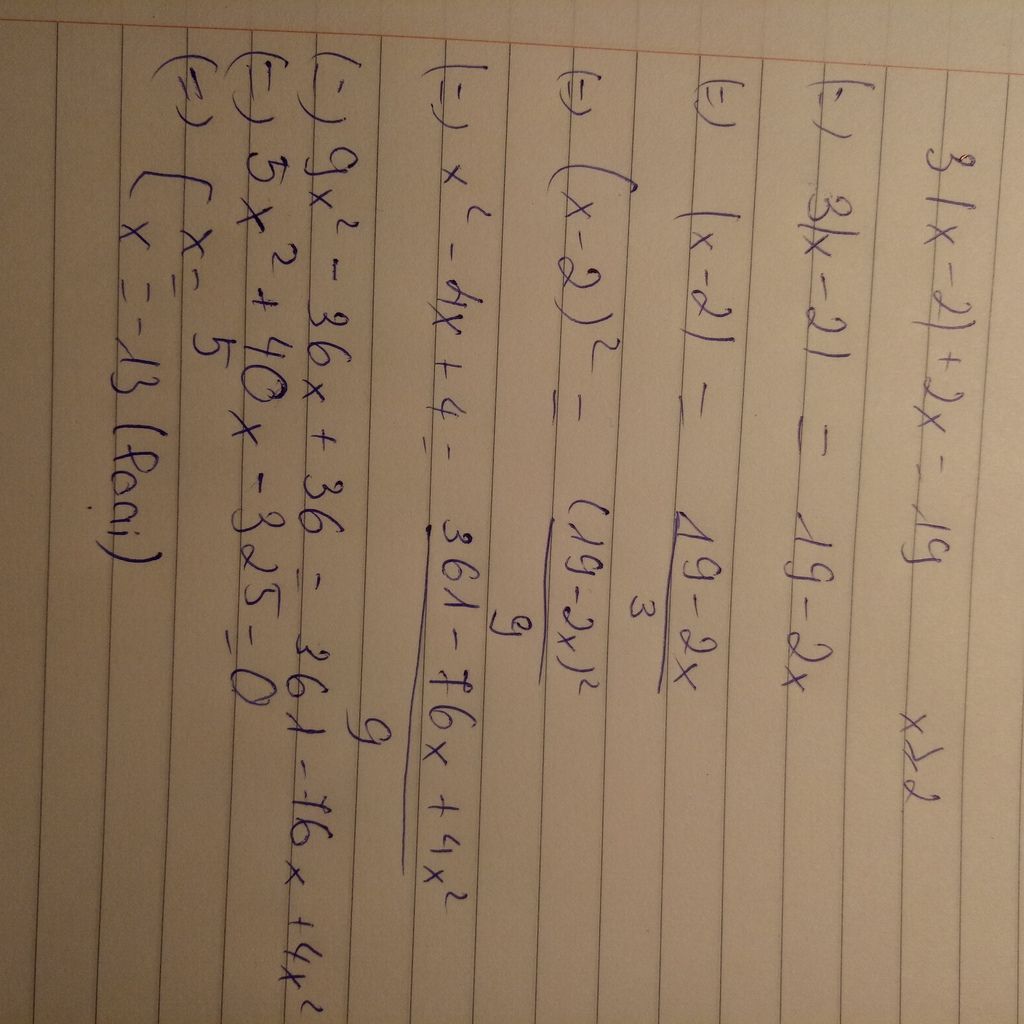 3|x-2|+2x=19 x≥2
(=) 3|x-2| = 19-2x
(=) |x-2| = (19-2x)/3
(=) (x-2)² = (19-2x)²/9
(=) x²-4x+4 = (361-76x+4x²)/9
(=) 9x²-36x+36 = 361-76x+4x²
(=) 5x²+40x-325=0
(=) { x = 5
x = -13 (loai)